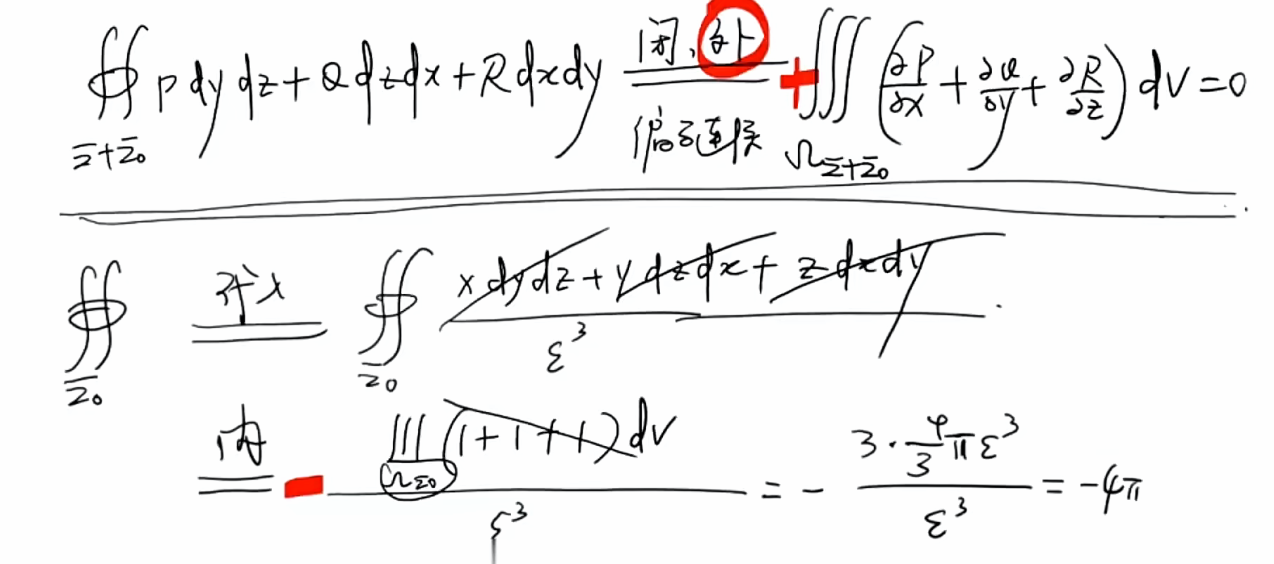 ∯_{Σ+Σ₀} P dy dz + Q dz dx + R dx dy  闭、外 / 偏导连续 =  + ∭_{Ω_{Σ+Σ₀}} (∂P/∂x + ∂Q/∂y + ∂R/∂z) dV = 0
∯_{Σ₀}  代入 =  ∯_{Σ₀} (x dy dz + y dz dx + z dx dy) / ε³
内 =  - ∭_{Ω_{Σ₀}} (1+1+1) dV / ε³ = - (3·4/3 π ε³) / ε³ = -4π